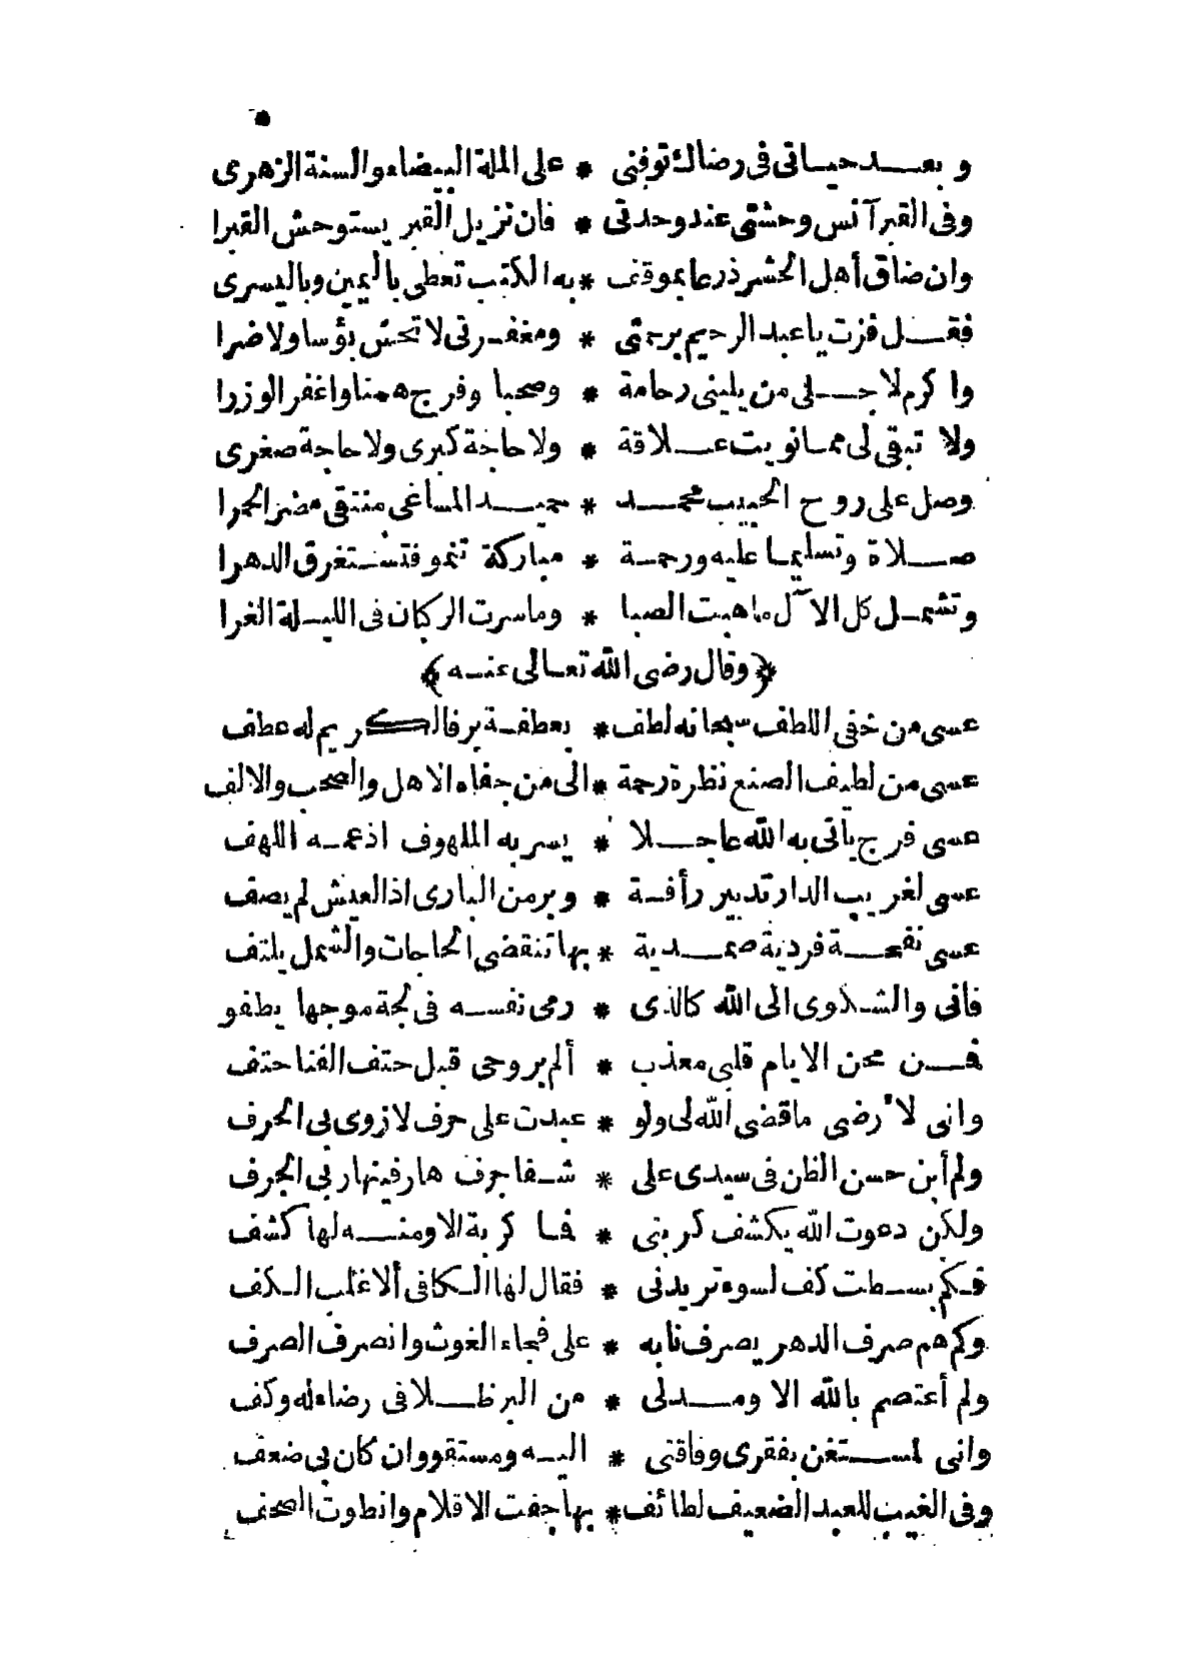 ٥
وبعد حياتى فى رضاك توفنى * على الملة البيضاء والسنة الزهرى
وفى القبر آنس وحشتى عند وحدتى * فان نزيل القبر يستوحش القبرا
وان ضاق أهل الحشر ذرعا بموقف * به الكتب تعطى باليمين وباليسرى
فقل فزت يا عبد الرحيم برحمتى * ومغفرتى لا تخش بؤسا ولا ضرا
واكرم لاجلى من يلينى رحامة * وصحبا وفرج همنا واغفر الوزرا
ولا تبقى لى مما نويت علاقة * ولا حاجة كبرى ولا حاجة صغرى
وصل على روح الحبيب محمد * حميد المساعى منتقى مضر الحمرا
صلاة وتسليما عليه ورحمة * مباركة تنمو فتستغرق الدهرا
وتشمل كل الآل ما هبت الصبا * وما سرت الركبان فى الليلة الغرا
﴿وقال رضى الله تعالى عنه﴾
عسى من خفى اللطف سبحانه لطف * بعطفة بر فالكريم له عطف
عسى من لطيف الصنع نظرة رحمة * الى من جفاه الاهل والصحب والالف
عسى فرج يأتى به الله عاجلا * يسر به الملهوف اذ عمه اللهف
عسى لغريب الدار تدبير رأفة * وبر من البارى اذا العيش لم يصف
عسى نفحة فردية صمدية * بها تنقضى الحاجات والشمل يلتف
فانى والشكوى الى الله كالذى * رمى نفسه فى لجة موجها يطفو
فمن محن الايام قلبى معذب * ألم بروحى قبل حتف الفنا حتف
وانى لارضى ما قضى الله لى ولو * عبدت على حرف لازوى بى الحرف
ولم أبن حسن الظن فى سيدى على * شفا جرف هار فينهار بى الجرف
ولكن دعوت الله يكشف كربتى * فما كربة الا ومنه لها كشف
فكم بسطت كف لسوء تريدنى * فقال لها الكافى ألا غلب الكف
وكم هم صرف الدهر يصرف نابه * على فجاء الغوث وانصرف الصرف
ولم أعتصم بالله الا ومد لى * من البر ظلا فى رضاء له وكف
وانى لمستغن بفقرى وفاقتى * اليه ومستقو وان كان بى ضعف
وفى الغيب للعبد الضعيف لطائف * بها جفت الاقلام وانطوت الصحف